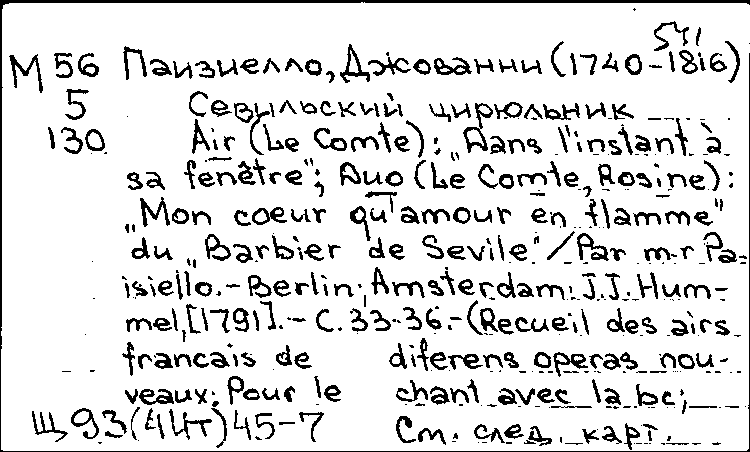 541
М 56 Паизиелло, Джованни (1740-1816)
5 Севильский цирюльник
130 Air (Le Comte): „Dans l'instant à
sa fenêtre"; Duo (Le Comte, Rosine):
„Mon coeur qu'amour en flamme"
du „Barbier de Sevile" / Par m-r Pa-
isiello. - Berlin; Amsterdam: J.J. Hum-
mel, [1791]. - С. 33-36. - (Recueil des airs
francais de diferens operas nou-
veaux; Pour le chant avec la bc;
Щ 93(44т)45-7 См. след. карт.